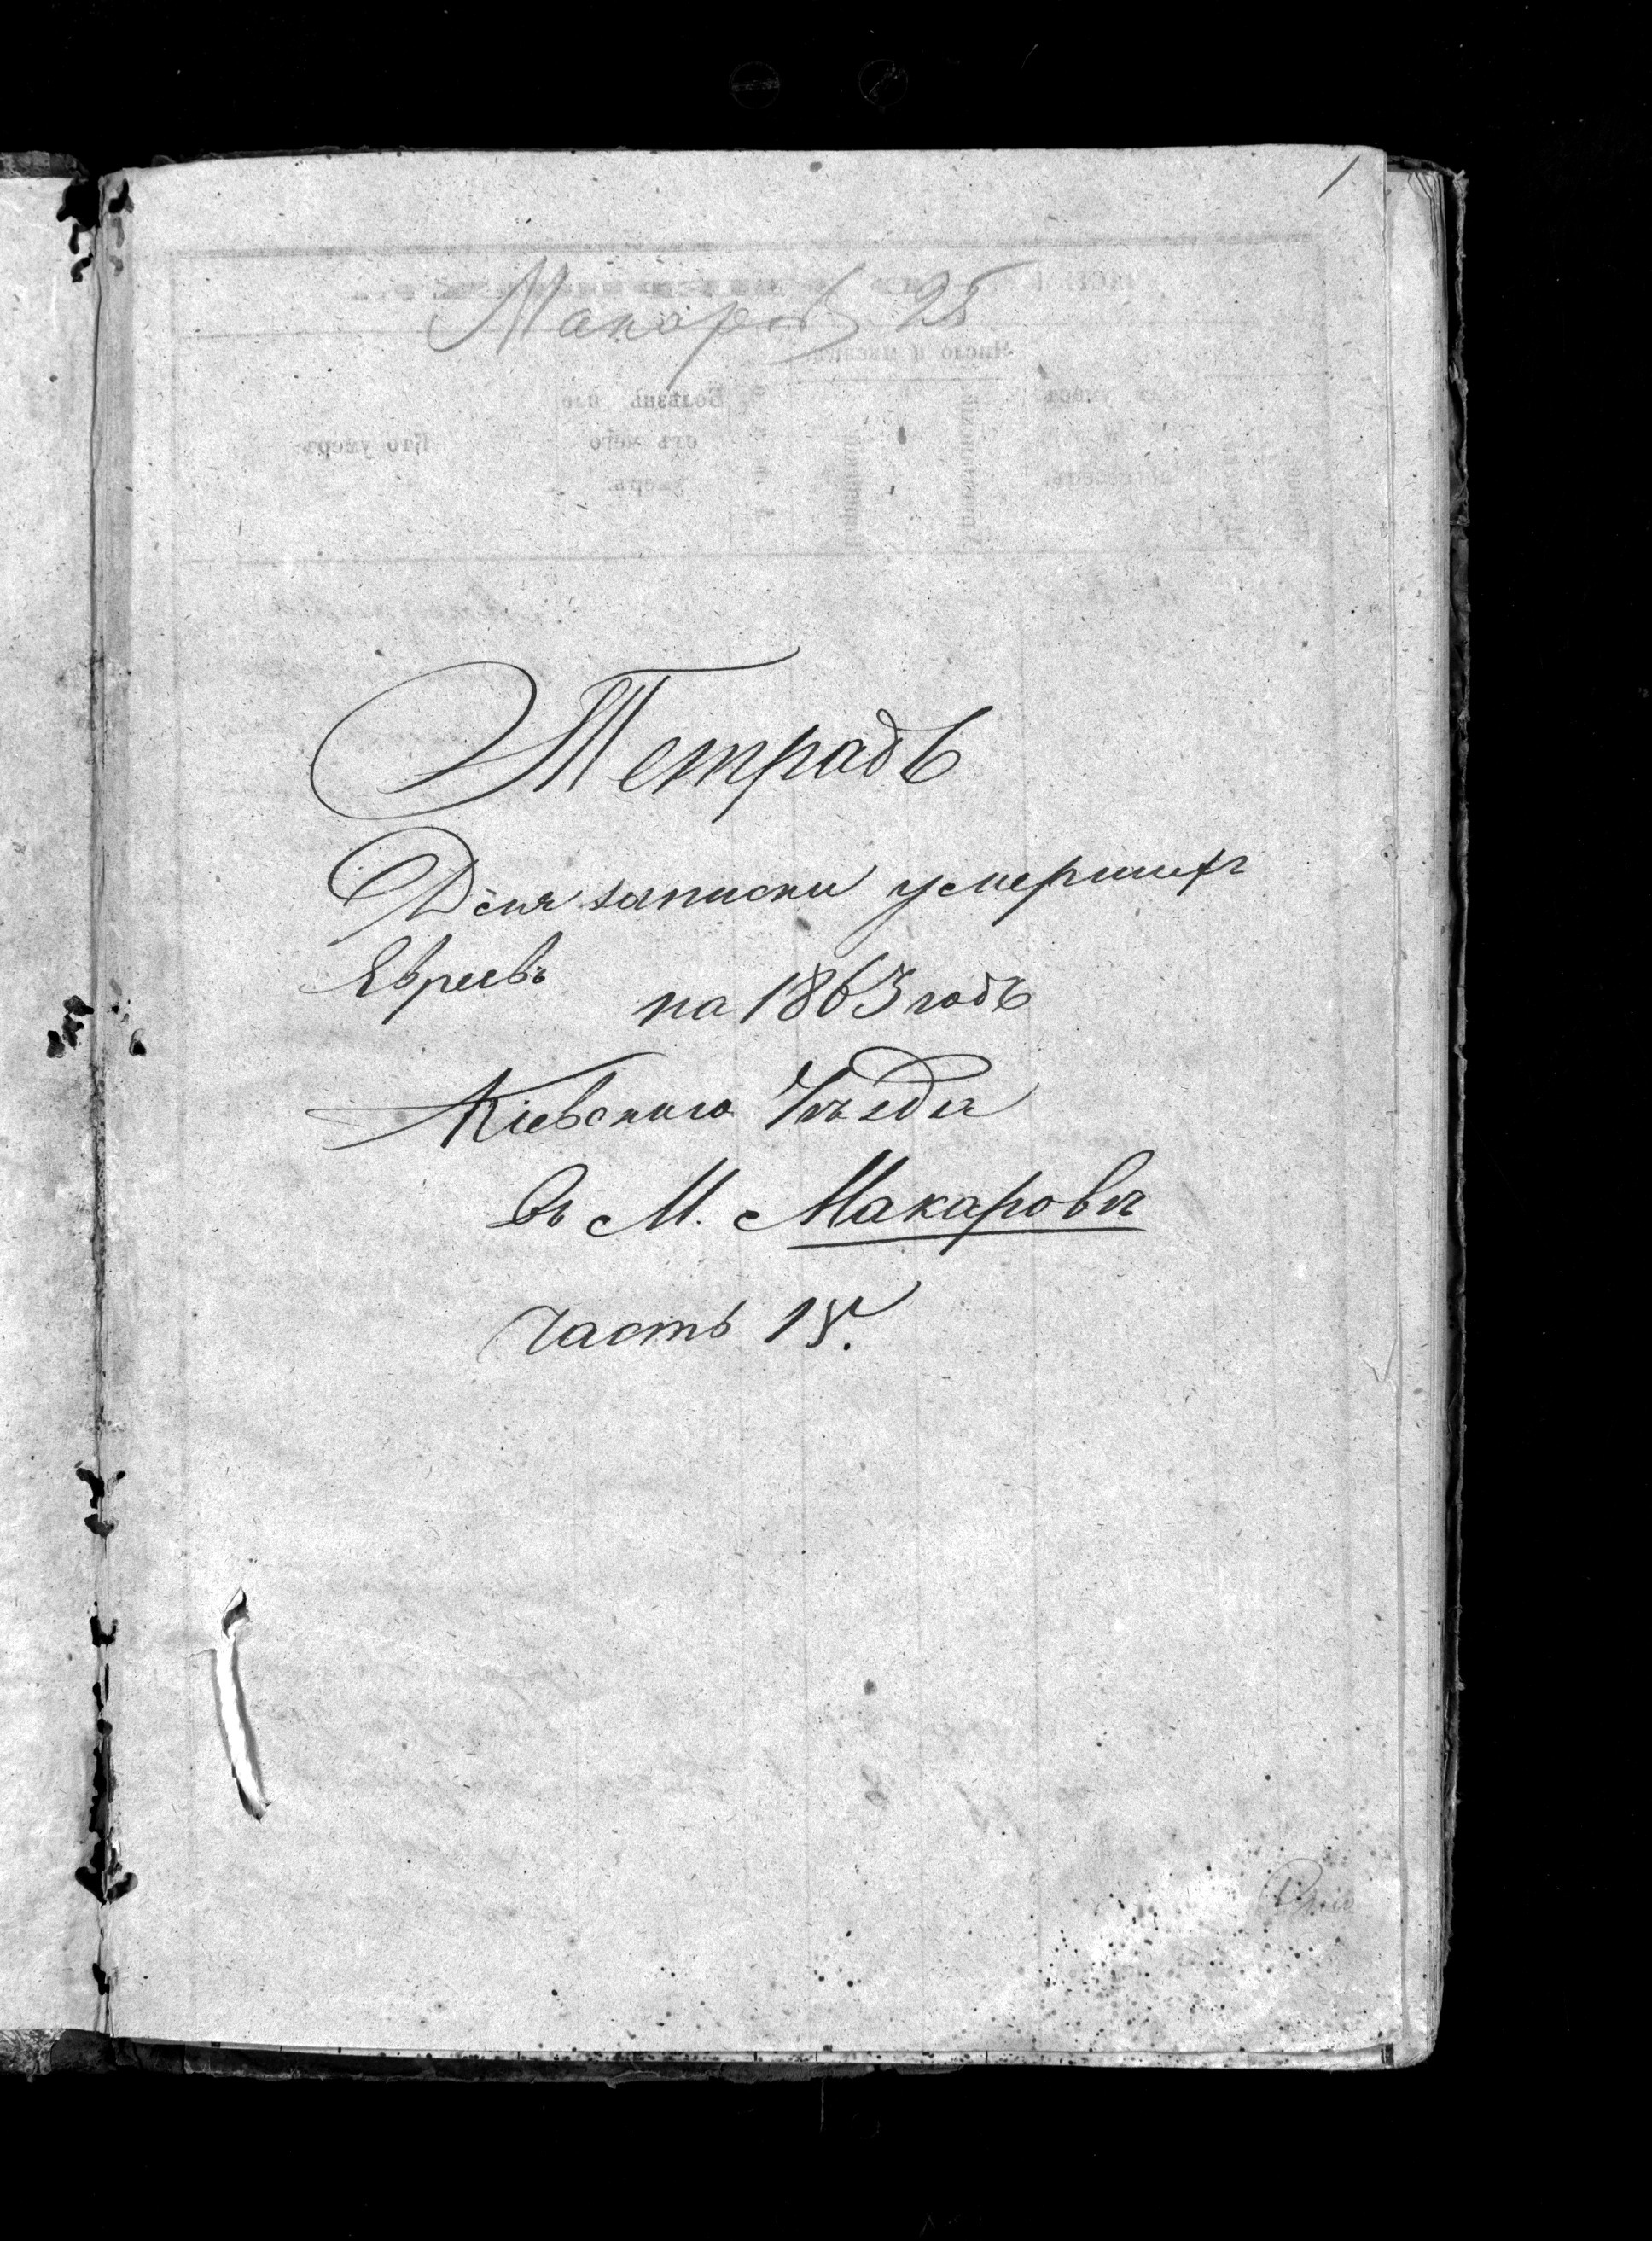 1
Макаров 25
Тетрадь
Для записки умершихъ
Евреевъ
на 1863 годъ
Кіевскаго Уѣзда
Въ М. Макаровѣ
Часть